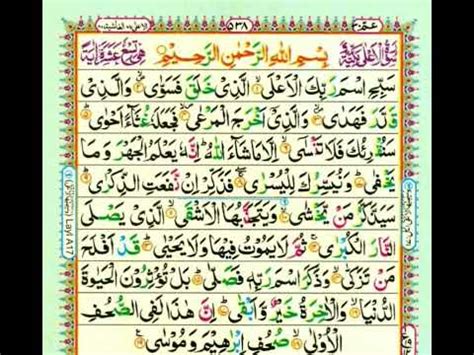 عم ٣٠
٥٣٨
سورة الاعلى مكية
بسم الله الرحمن الرحيم
سَبِّحِ اسْمَ رَبِّكَ الْأَعْلَى ① الَّذِي خَلَقَ فَسَوَّىٰ ② وَالَّذِي
قَدَّرَ فَهَدَىٰ ③ وَالَّذِي أَخْرَجَ الْمَرْعَىٰ ④ فَجَعَلَهُ غُثَاءً أَحْوَىٰ ⑤
سَنُقْرِئُكَ فَلَا تَنْسَىٰ ⑥ إِلَّا مَا شَاءَ اللَّهُ إِنَّهُ يَعْلَمُ الْجَهْرَ وَمَا
يَخْفَىٰ ⑦ وَنُيَسِّرُكَ لِلْيُسْرَىٰ ⑧ فَذَكِّرْ إِنْ نَفَعَتِ الذِّكْرَىٰ ⑨
سَيَذَّكَّرُ مَنْ يَخْشَىٰ ⑩ وَيَتَجَنَّبُهَا الْأَشْقَى ⑪ الَّذِي يَصْلَى
النَّارَ الْكُبْرَىٰ ⑫ ثُمَّ لَا يَمُوتُ فِيهَا وَلَا يَحْيَىٰ ⑬ قَدْ أَفْلَحَ
مَنْ تَزَكَّىٰ ⑭ وَذَكَرَ اسْمَ رَبِّهِ فَصَلَّىٰ ⑮ بَلْ تُؤْثِرُونَ الْحَيَاةَ
الدُّنْيَا ⑯ وَالْآخِرَةُ خَيْرٌ وَأَبْقَىٰ ⑰ إِنَّ هَٰذَا لَفِي الصُّحُفِ
الْأُولَىٰ ⑱ صُحُفِ إِبْرَاهِيمَ وَمُوسَىٰ ⑲